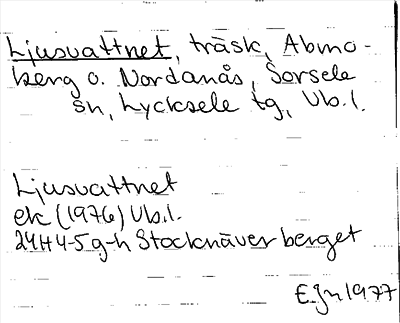 Ljusvattnet, träsk, Abmo-
berg o. Nordanås, Sorsele
sn, Lycksele tg, Vb.l.
Ljusvattnet
ek (1976) Vb.l.
24H 4-5 g-h Stocknäverberget
E.Jn 1977